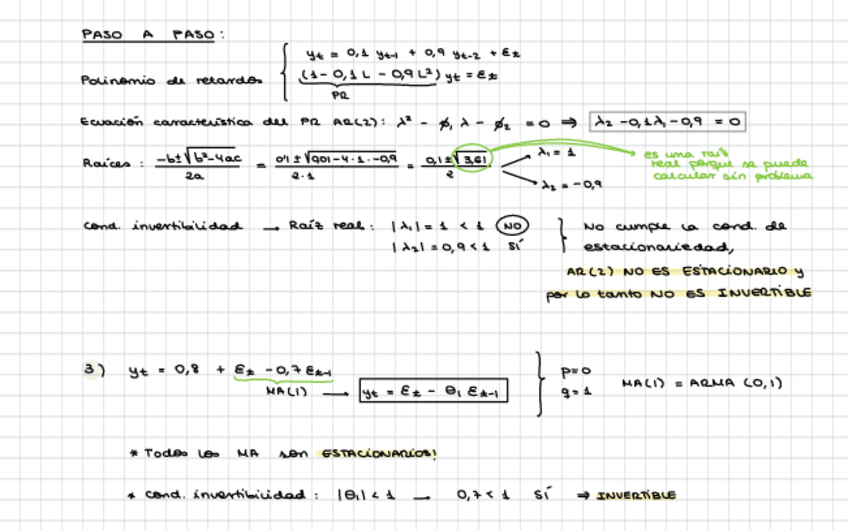 PASO A PASO:
yt = 0,1 yt-1 + 0,9 yt-2 + εt
Polinomio de retardos (1 - 0,1 L - 0,9 L²) yt = εt
PR
Ecuación característica del PR AR(2): λ² - φ₁ λ - φ₂ = 0 ⇒ λ₂ - 0,1λ₁ - 0,9 = 0
Raíces: -b±√b²-4ac / 2a = 0'1±√0'01-4·1·-0,9 / 2·1 = 0,1±√3,61 / 2
λ₁ = 1
λ₂ = -0,9
es una raíz
real porque se puede
calcular sin problema
Cond. invertibilidad → Raíz real: |λ₁| = 1 < 1 NO
|λ₂| = 0,9 < 1 SÍ
No cumple la cond. de
estacionariedad,
AR(2) NO ES ESTACIONARIO y
por lo tanto NO ES INVERTIBLE
3) yt = 0,8 + εt - 0,7 εt-1
MA(1) → yt = εt - θ₁ εt-1
p=0
q=1
MA(1) = ARMA (0,1)
* Todos los MA son ESTACIONARIOS!
* Cond. invertibilidad: |θ₁| < 1 → 0,7 < 1 SÍ ⇒ INVERTIBLE